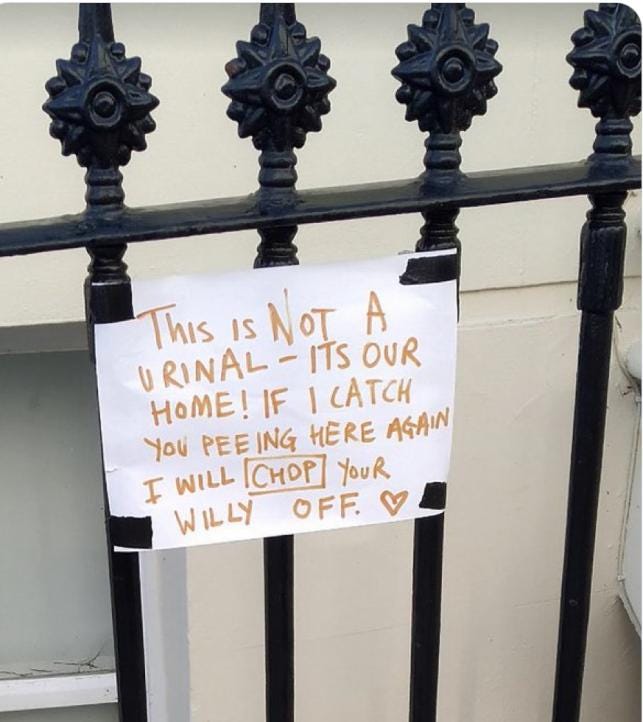 THIS IS NOT A
URINAL - ITS OUR
HOME! IF I CATCH
YOU PEEING HERE AGAIN
I WILL CHOP YOUR
WILLY OFF. ♡